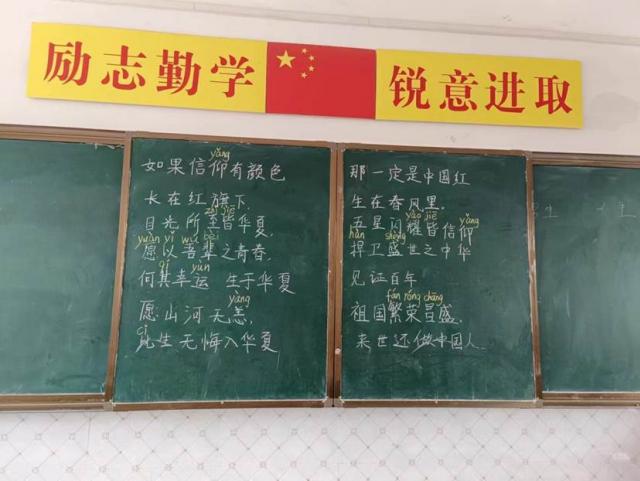 励志勤学
锐意进取
yǎng
如果信仰有颜色
长在红旗下,
zhì jiē
目光所至皆华夏,
yuàn yǐ wú bèi
愿以吾辈之青春,
qí yùn
何其幸运 生于华夏
yàng
愿山河无恙,
此生无悔入华夏
那一定是中国红
生在春风里,
yào jiē yǎng
五星闪耀皆信仰
hàn shèng
捍卫盛世之中华
见证百年
fán róng chāng
祖国繁荣昌盛,
来世还做中国人.